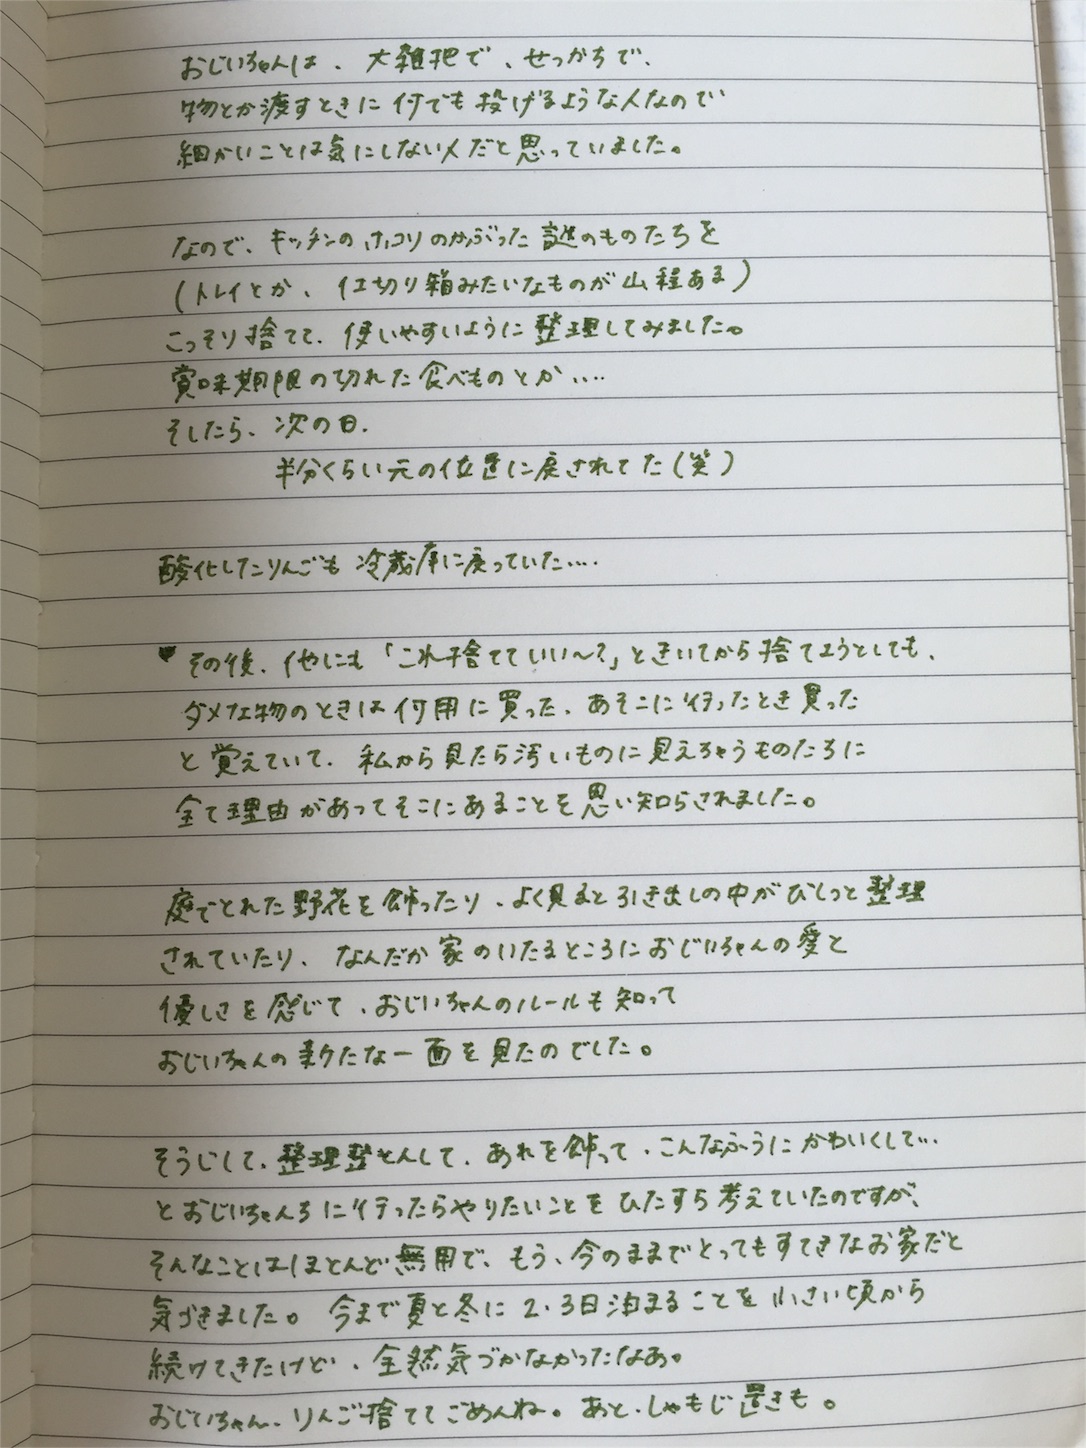 おじいちゃんは、大雑把で、せっかちで、
物とか渡すときに何でも投げるような人なので
細かいことは気にしない人だと思っていました。
なので、キッチンのホコリのかぶった謎のものたちを
(トレイとか、仕切り箱みたいなものが山程ある)
こっそり捨てて、使いやすいように整理してみました。
賞味期限の切れた食べものとか....
そしたら、次の日、
半分くらい元の位置に戻されてた(笑)
酸化したりんごも冷蔵庫に戻っていた....
その後、他にも「これ捨てていい〜?」ときいてから捨てようとしても、
ダメな物のときは何用に買った、あそこに行ったとき買った
と覚えていて、私から見たら汚いものに見えちゃうものたちに
全て理由があってそこにあることを思い知らされました。
庭でとれた野花を飾ったり、よく見ると引き出しの中がびしっと整理
されていたり、なんだか家のいたるところにおじいちゃんの愛と
優しさを感じて、おじいちゃんのルールも知って
おじいちゃんの新たな一面を見たのでした。
そうじして、整理整とんして、あれを飾って、こんなふうにかわいくして…
とおじいちゃんちに行ったらやりたいことをひたすら考えていたのですが、
そんなことはほとんど無用で、もう、今のままでとってもすてきなお家だと
気づきました。今まで夏と冬に2.3日泊まることを小さい頃から
続けてきたけど、全然気づかなかったなあ。
おじいちゃん、りんご捨ててごめんね。あと、しゃもじ置きも。